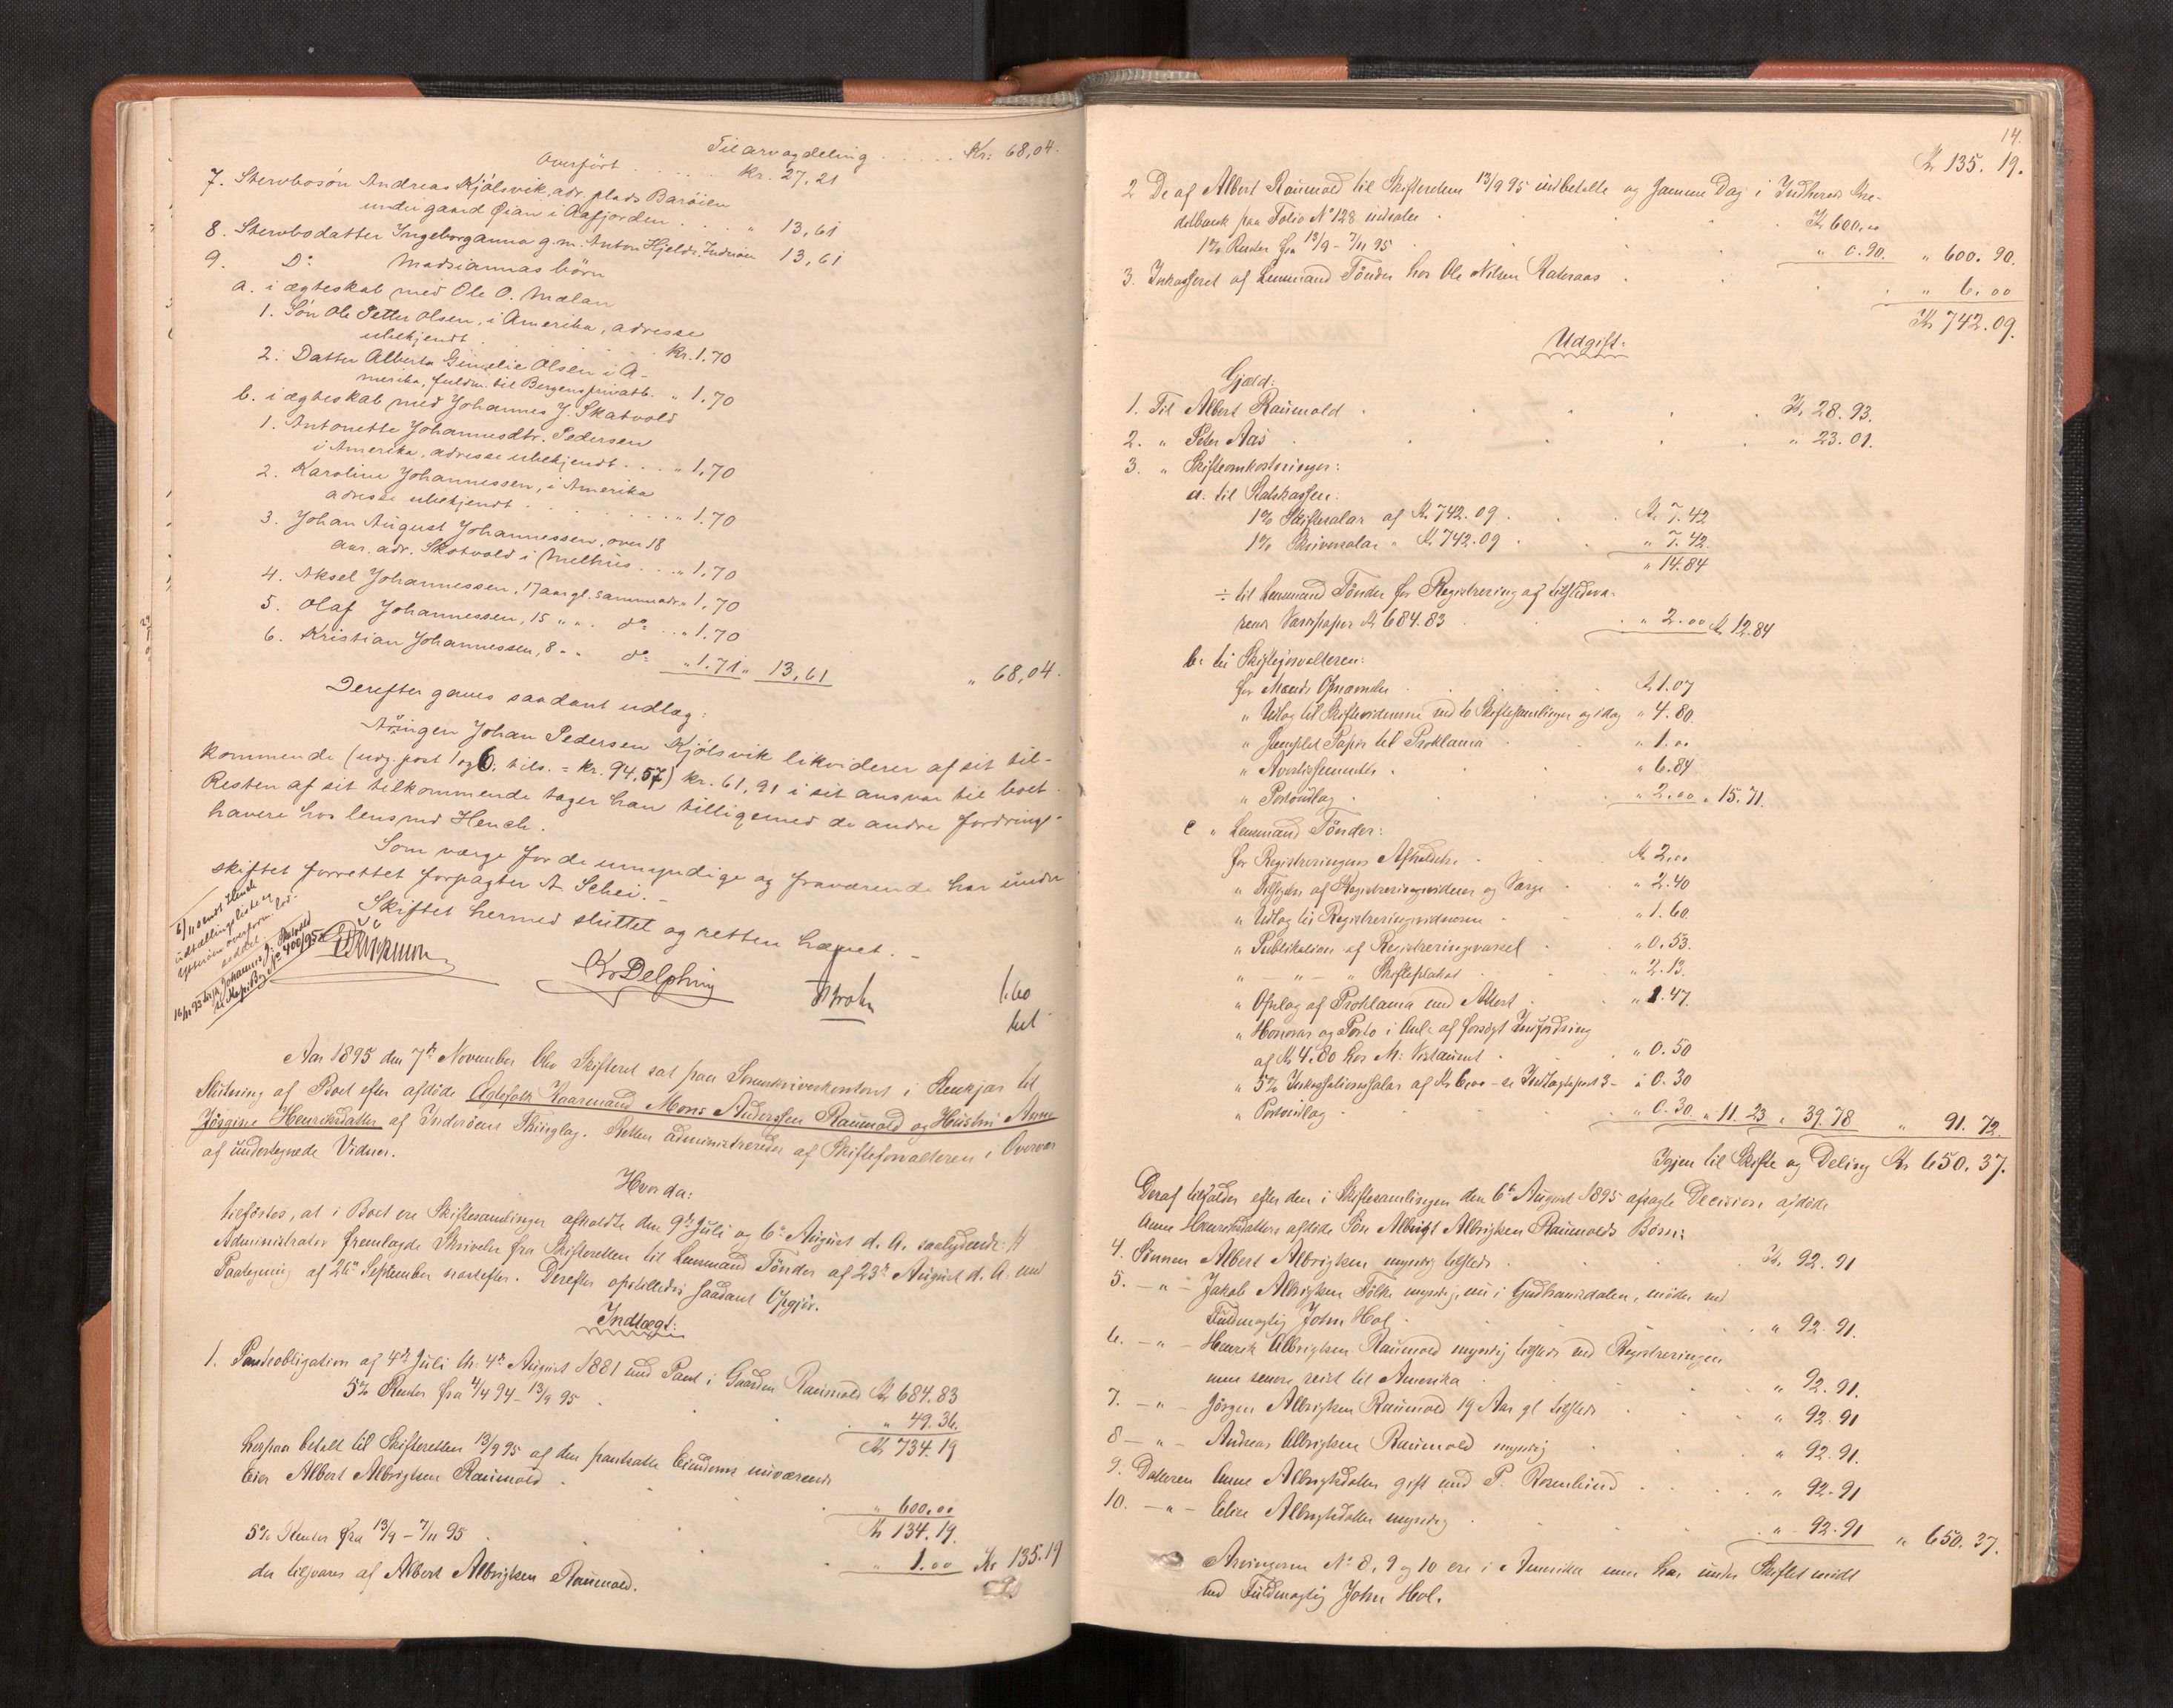 Til arvogdeling . . . . . Kr: 68,04.
Overført . . . . . . Kr. 27,21
7. Stervbosøn Andreas Kjølsvik, adr. plads Barøien
under gaard Øian i Aafjorden . . . . " 13,61
8. Stervbodatter Ingeborganna g.m. Anton Hjelde, Inderøen 13,61
9. Do Madsiannas børn
a. i ægteskab med Ole O. Mælan
1. Søn Ole Petter Olsen, i Amerika, adresse
ubekjendt . . . . . . Kr. 1.70
2. Datter Alberta Olsen i A-
merika, fuldm. til Bergens privatb. " 1,70
b. i ægteskab med Johannes J. Skatvold
1. Antonette Johannesdtr. Pedersen
i Amerika, adresse ubekjendt . . . . " 1,70
2. Karoline Johannessen, i Amerika
adresse ubekjendt . . . . . . . . " 1.70
3. Johan August Johannessen, over 18
aar. adr. Skotvold i Melhus . . . " 1,70
4. Aksel Johannessen, 17 aar gl. samme adr. " 1,70
5. Olaf Johannessen, 15 " " . do . . " 1.70
6. Kristian Johannessen, 8 " " do " 1.71 " 13,61 " 68,04.
Derefter gaves saadant udlæg:
Arvingen Johan Pedersen Kjølsvik likviderer af sit til-
kommende (udg. post 1 og 6. tils. = kr. 94,57) kr. 61,91 i sit ansvar til boet.
Resten af sit tilkommende tager han tilligemed de andre fordrings-
havere hos lensmd Hench.
Som værge for de umyndige og fraværende har under
skiftet forrettet forpagter A. Schei. -
Skiftet hermed sluttet og retten hævet. -
6/11 sendt Hench
udtællingsliste og
Kr Delphin
1.60
Aar 1895 den 7de November blev Skifteret sat paa Sorenskriverkontoret i Stenkjær til
Slutning af Boet efter afdøde Ægtefolk Kaarmand Mons Anderssen Raumold og Hustru Anne
Jørgine Henriksdatter af Inderøens Thinglag. Retten administreredes af Skifteforvalteren i Overvær
af undertegnede Vidner.
Hvorda:
tilførtes, at i Boet ere Skiftesamlinger afholdte den 9de Juli og 6te August d. A. saalydende: #
Administrator fremlagde Skrivelse fra Skifteretten til Lensmand Tønder af 23de August d. A. med
Paategning af 26de September næstefter. Derefter opstilledes saadant Opgjør.
Indtægt:
1. Panteobligation af 4de Juli th. 4de August 1881 med Pant i Gaarden Raumold Kr 684.83
5% Renter fra 4/4 94 - 13/9 95 . " 49.36.
Kr 734.19
herpaa betalt til Skifteretten 13/9 95 af den pantsatte Eiendoms nuværende
Eier Albert Albrigtsen Raumold . " 600.00
Kr 134.19.
5% Renter fra 13/9 - 7/11 95 . " 1.00 Kr 135.19
der tilsvares af Albert Albrigtsen Raumold.
14.
Kr 135. 19.
2 De af Albert Raumold til Skifteretten 13/9 95 indbetalte og samme Dag i Indherreds Kre-
ditbank paa Folio No 128 indsatte . Kr 600,00
1% Renter fra 13/9 - 7/11 95 . " 0.90. " 600. 90.
3. Inkasseret af Lensmand Tønder hos Ole Nilsen . " 6,00
Kr 742.09.
Udgift:
Gjæld:
1. Til Albert Raumold . Kr. 28.93.
2. " Peter Aas . " 23.01.
3. " Skifteomkostninger:
a. til Statskassen:
1% Skiftesalær af Kr. 742.09 . Kr. 7.42
1% Skriversalær " Kr 742.09 . " 7.42.
" 14.84
÷ til Lensmand Tønder for Registrering af tilstedevæ-
rende Værdipapir Kr 684.83 . " 2.00 Kr. 12.84
b. til Skifteforvalteren:
for Mænds Opnævnelse . Kr 1.07
" Udlæg til Skiftevidnerne ved to Skiftesamlinger og idag " 4.80.
" Stemplet Papir til Proklama . " 1.00
" Avertissementer . " 6.84
" Portoudlæg . " 2.00 " 15.71.
c " Lensmand Tønder:
for Registreringens Afholdelse . Kr 2,00
" Tilsigelse af Registreringsvidner og Værge . " 2.40
" Udlæg til Registreringsvidnerne . " 1.60.
" Publikation af Registreringsvarsel . " 0.53.
" — " — " Skifteplakat . " 2.13.
" Opslag af Proklama med Attest . " 1.47.
" Honorar og Porto i Anl. af forsøgt Inddrivning
af Kr 4.80 hos M. . " 0.50
" 5% Inkassationssalær af Kr 6,00 - se Indtægtspost 3 - " 0.30
" Portoudlæg . " 0.30 " 11.23 " 39.78 " 91. 72.
Igjen til Skifte og Deling Kr 650.37.
Deraf tilfalder efter den i Skiftesamlingen den 6te August 1895 afsagte Decision afdøde
Anne Henriksdatters afdøde Søn Albrigt Albrigtsen Raumolds Børn:
4. Sønnen Albert Albrigtsen myndig tilstede . Kr. 92.91
5. — " — Jakob Albrigtsen Folke myndig, nu i Gudbransdalen, møder ved
Fuldmægtig John Hol . " 92.91.
6. — " — Henrik Albrigtsen Raumold myndig tilstede ved Registreringen
men senere reist til Amerika . " 92.91.
7. — " — Jørgen Albrigtsen Raumold 19 Aar gl tilstede . " 92.91
8 — " — Andreas Albrigtsen Raumold myndig . " 92.91.
9. Datteren Anne Albrigtsdatter gift med P. Rosenlund . " 92.91
10. — " — Eline Albrigtsdatter myndig . " 92.91 " 650.37.
Arvingerne No 8, 9 og 10 ere i Amerika men har under Skiftet mødt
ved Fuldmægtig John Hol.